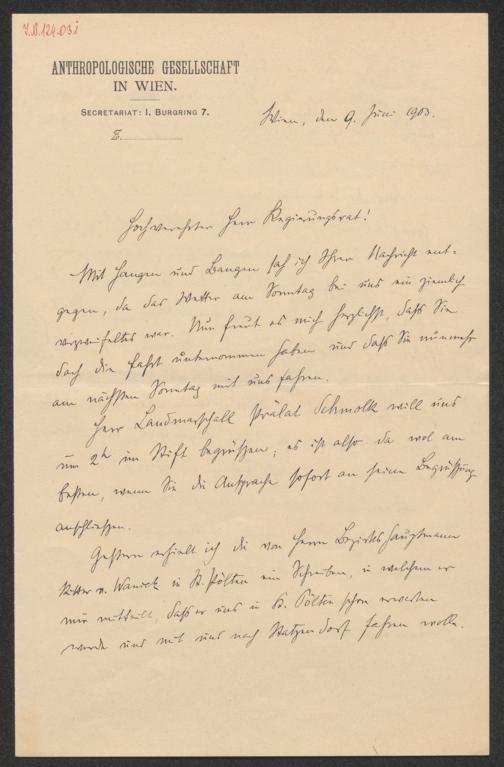 J.N.124.031
ANTHROPOLOGISCHE GESELLSCHAFT
IN WIEN.
SECRETARIAT: I. BURGRING 7.
Z.
Wien, den 9. Juni 1903.
Hochverehrter Herr Regierungsrat!
Mit Hangen und Bangen sah ich Ihrer Nachricht ent-
gegen, da das Wetter am Sonntag bei uns ein ziemlich
verzweifeltes war. Nun freut es mich herzlichst, daß Sie
doch die Fahrt unternommen haben und daß Sie nunmehr
am nächsten Sonntag mit uns fahren.
Herr Landmarschall Prälat Schmolk will uns
um 2h im Stift begrüßen; es ist also da wol am
besten, wenn Sie die Ansprache sofort an seine Begrüßung
anschließen.
Gestern erhielt ich die von Herrn Bezirkshauptmann
Ritter v. Wanick in St. Pölten ein Schreiben, in welchem er
mir mitteilt, daß er uns in St. Pölten schon erwarten
werde und mit uns nach Statzendorf fahren wolle.